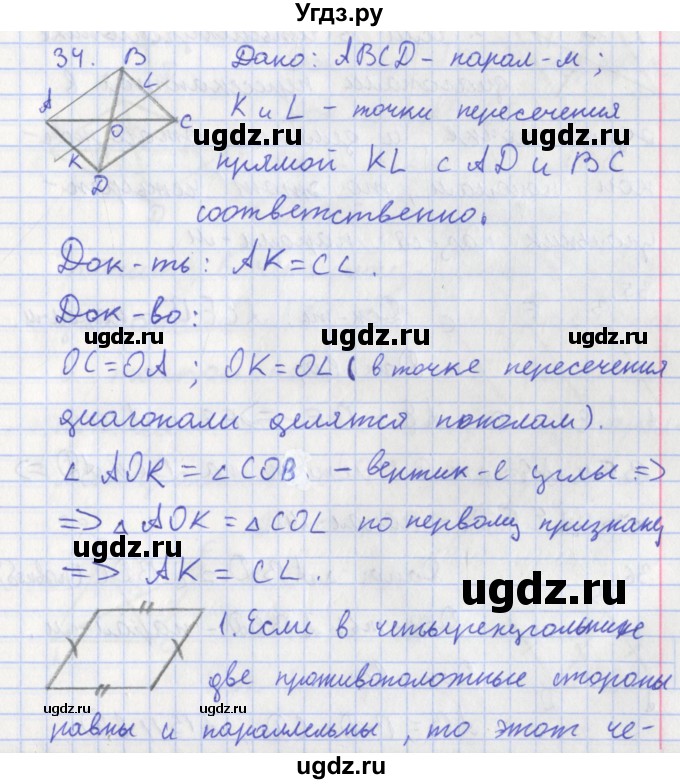 Угдз.ру
34.
B
L
A
O
C
K
D
Дано: ABCD - парал-м;
K и L - точки пересечения
прямой KL с AD и BC
соответственно.
Док-ть: AK = CL.
Док-во:
OC=OA; OK=OL (в точке пересечения
диагонали делятся пополам).
∠ AOK = ∠ COB - вертик-е углы =>
=> △ AOK = △ COL по первому признаку
=> AK = CL.
1. Если в четырехугольнике
две противоположные стороны
равны и параллельны, то этот че-
ugdz.ru
ugdz.ru
ugdz.ru
ugdz.ru
ugdz.ru
ugdz.ru
ugdz.ru
ugdz.ru
ugdz.ru
ugdz.ru
ugdz.ru
ugdz.ru
ugdz.ru
ugdz.ru
©ugdz.ru